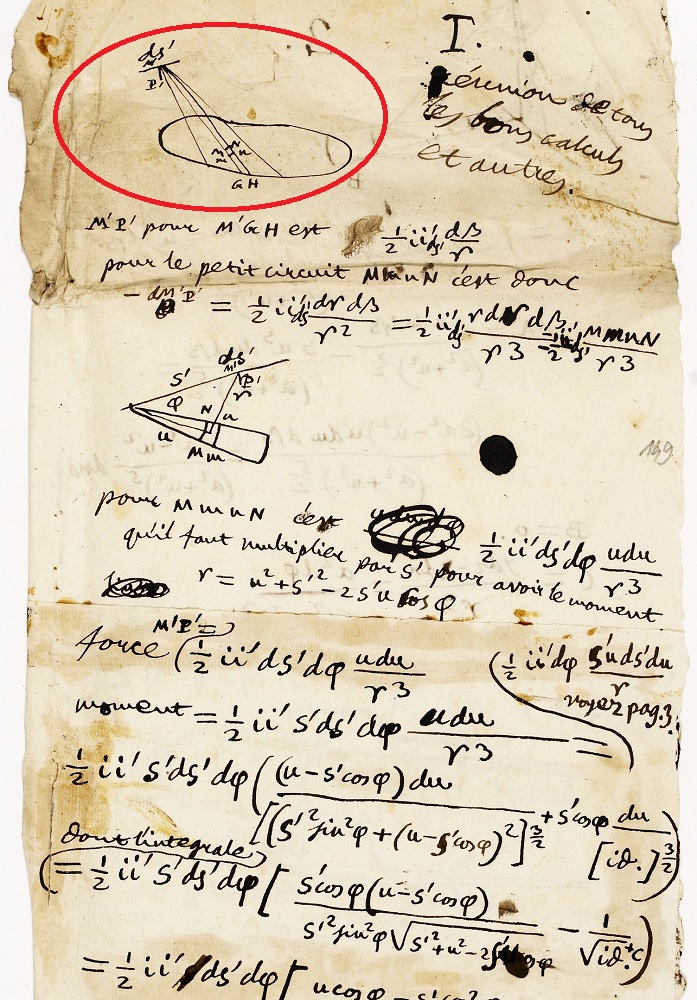 I.
réunion de tous
les bons calculs
et autres.
ds'
M'
P'
N n
M m
G H
M'P' pour M'GH est ½ ii'ds' dβ/r
pour le petit circuit MmnN c'est donc
- dM'P' = ½ ii'ds' dr dβ/r² = ½ ii'ds' r dr dβ/r³ = ½ ii'ds' MmnN/r³
ds'
S' M' P'
φ r
N n
u
M m
149
pour MmnN c'est ½ ii'ds'dφ udu/r³
qu'il faut multiplier par S' pour avoir le moment
r = u² + s'² - 2s'u cos φ
M'P' =
force (½ ii' ds'dφ udu/r³
(½ ii'dφ s'uds'du/r
voyez pag. 3.
moment = ½ ii' s'ds'dφ udu/r³ =
½ ii' s'ds'dφ ((u-s'cosφ)du/[(s'²sin²φ + (u-s'cosφ)²]^3/2 + s'cosφ du/[id.]^3/2)
dont l'integrale
(= ½ ii' s'ds'dφ [s'cosφ(u-s'cosφ)/s'²sin²φ√s'²+u²-2s'u cosφ - 1/√id. + c)
= ½ ii' s'ds'dφ [ucosφ - s'cos²φ